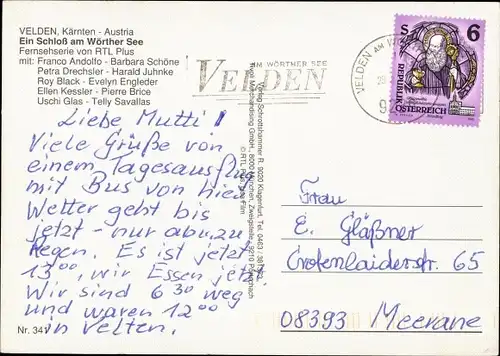 VELDEN, Kärnten - Austria
Ein Schloß am Wörther See
Fernsehserie von RTL Plus
mit: Franco Andolfo - Barbara Schöne
Petra Drechsler - Harald Juhnke
Roy Black - Evelyn Engleder
Ellen Kessler - Pierre Brice
Uschi Glas - Telly Savallas
Liebe Mutti!
Viele Grüße von
einem Tagesausflug
mit Bus von hier
Wetter geht bis
jetzt - nur ab u. zu
Regen. Es ist jetzt
13 00, wir Essen jetzt
Wir sind 6 30 weg
und waren 12 00
in Velten.
Nr. 341
AM WÖRTHER SEE
VELDEN
VELDEN AM
S 6
REPUBLIK
ÖSTERREICH
Verlag Schrottshammer R. 9020 Klagenfurt, Tel. 0463
© RTL Plus
Frau
E. Gläßner
Crotenlaiderstr. 65
08393 Meerane